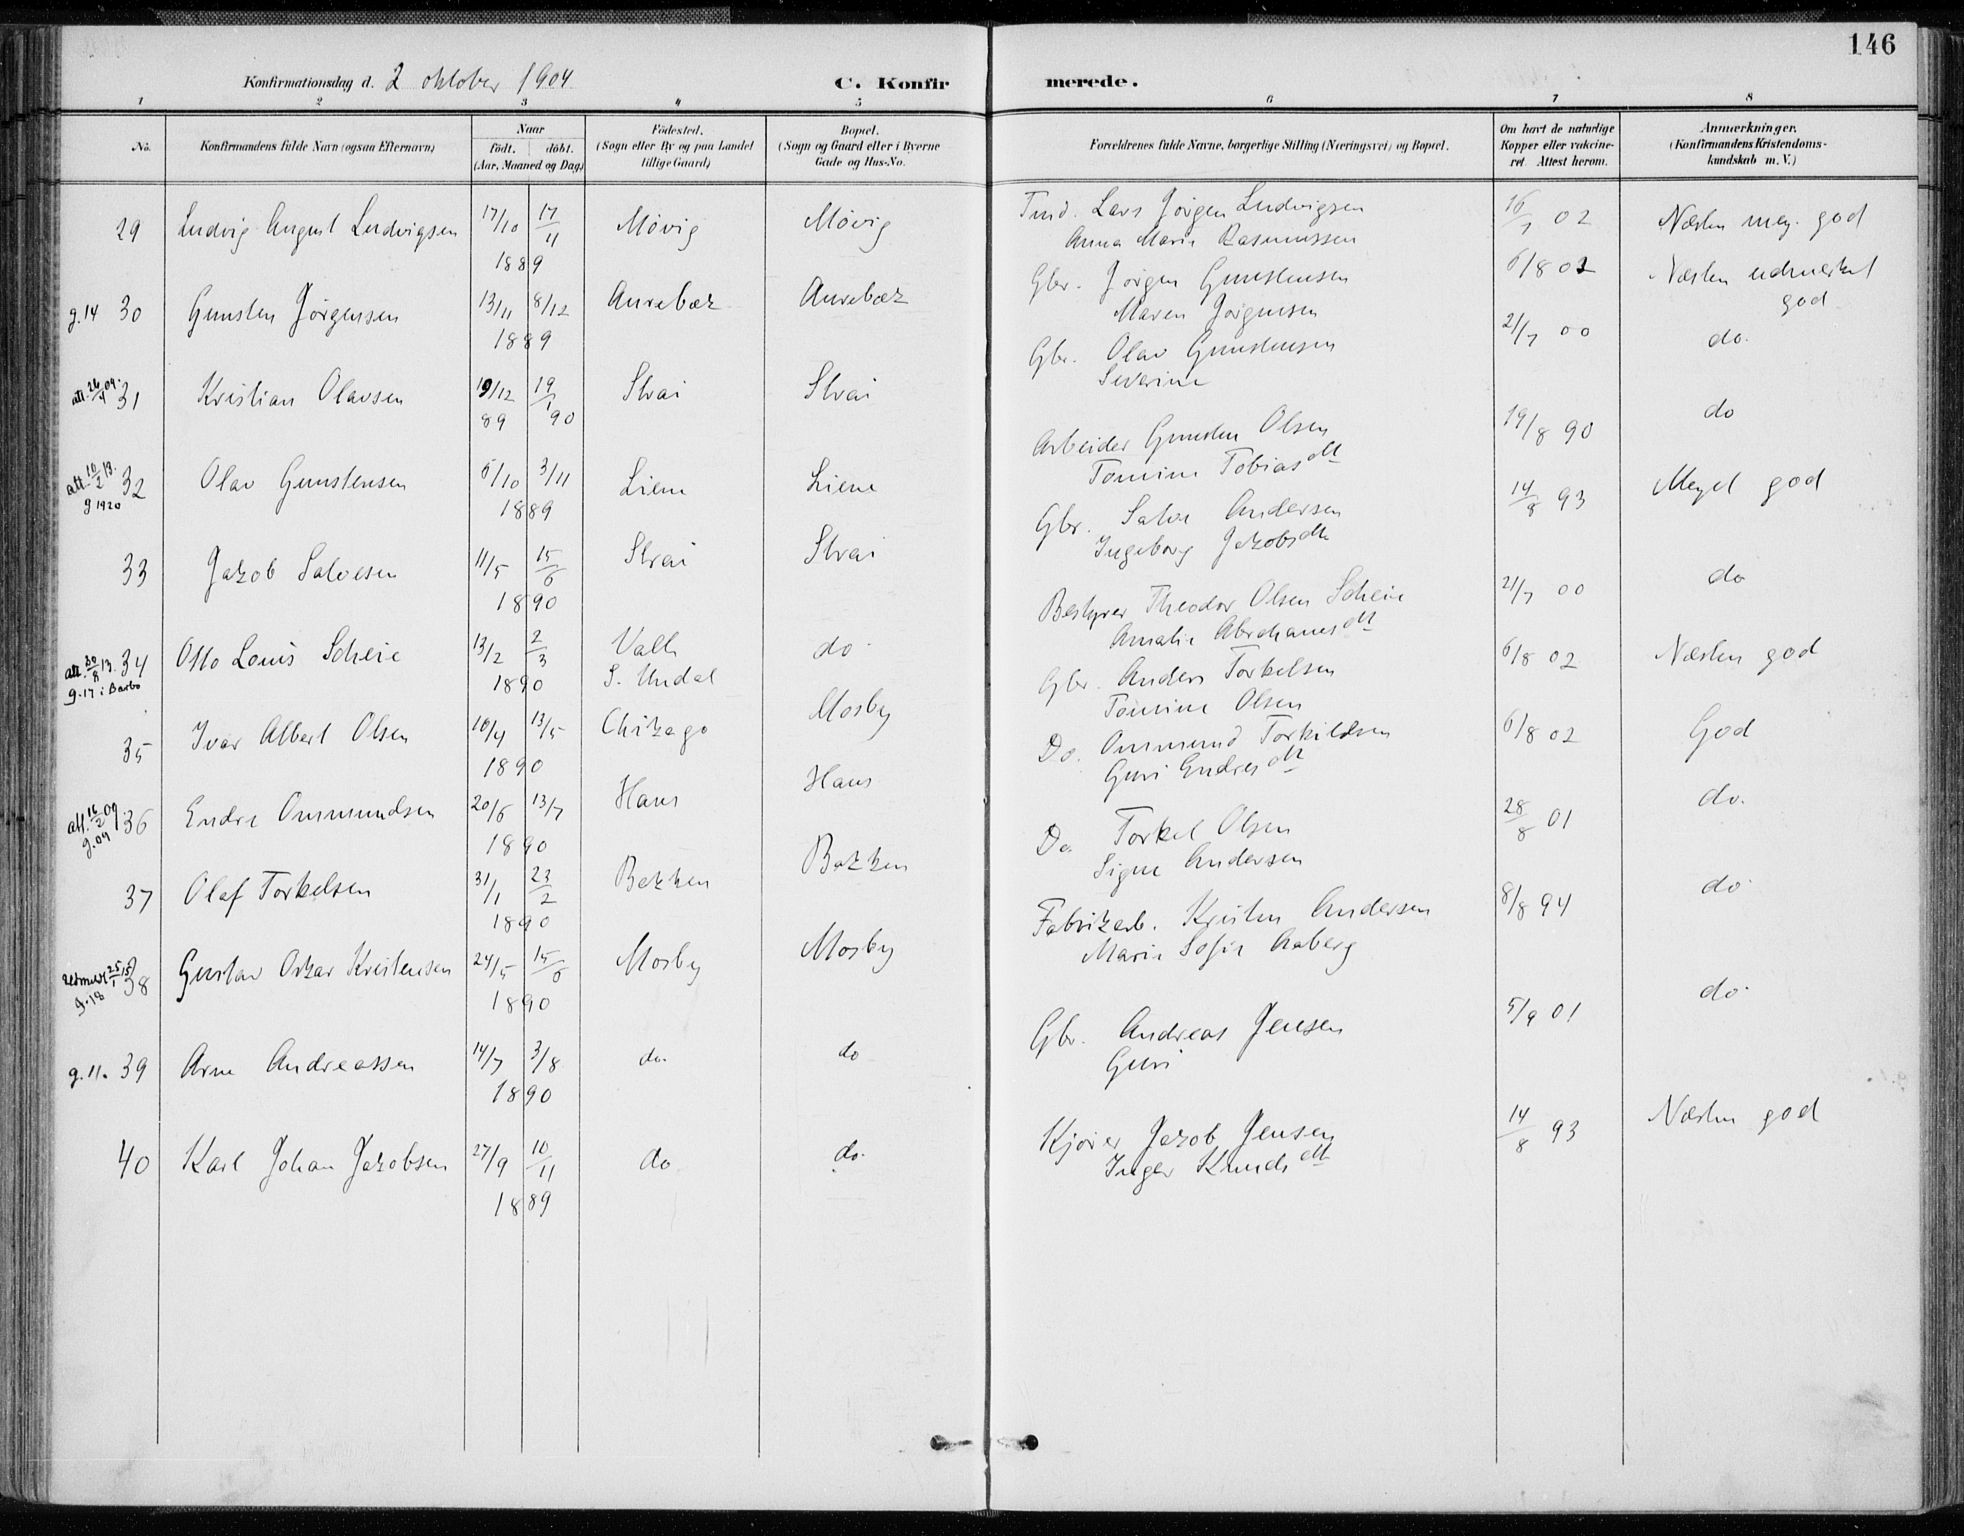 146
Konfirmationsdag d. 2 oktober 1904
C. Konfirmerede.
1 2 3 4 5 6 7 8
No.
Konfirmandens fulde Navn (ogsaa Efternavn)
Naar
født. døbt.
(Aar, Maaned og Dag)
Fødested.
(Sogn eller By og paa Landet
tillige Gaard)
Bopæl.
(Sogn og Gaard eller i Byerne
Gade og Hus-No.
Forældrenes fulde Navne, borgerlige Stilling (Næringsvei) og Bopæl.
Om havt de naturlige
Kopper eller vakcine-
ret. Attest herom.
Anmærkninger.
(Konfirmandens Kristendoms-
kundskab m. V.)
29 Ludvig August Ludvigsen 17/10 17/11 1889 Møvig Møvig
Lars Jørgen Ludvigsen
Anna Marie Rasmussen
16/7 02 Næsten meg. god
g. 14 30 Gunsten Jørgensen 13/11 8/12 1889 Aurebæk Aurebæk
Gbr. Jørgen Gunstensen
Maren Jørgensen
6/8 02 Næsten udmerket
god
att. 26/4 09. 31 Kristian Olavsen 19/12 89 19/1 90 Strai Strai
Gbr. Olav Gunstensen
Severine
21/7 00 do.
att. 10/2 13. g 1920 32 Olav Gunstensen 6/10 3/11 1889 Liene Liene
Arbeider Gunsten Olsen
Tomine Tobiasdtt
19/8 90 do
33 Jakob Salvesen 11/5 15/6 1890 Strai Strai
Gbr. Salve Andersen
Ingeborg Jakobsdtt
14/8 93 Meget god
att. 30/8 13. g. 17 i Barbo 34 Otto Louis Scheie 13/2 2/3 1890 Valle
S. Undal do.
Bestyrer Theodor Olsen Scheie
Amalie Abrahamsdtt
21/7 00 do
35 Ivar Albert Olsen 10/4 13/5 1890 Chikago Mosby
Gbr. Anders Torkelsen
Tomine Olsen
6/8 02 Næsten god
att. 16/2 09. g. 09 36 Endre Ommundsen 20/6 13/7 1890 Haus Haus
Do. Ommund Torkildsen
Guri Endresdtt
6/8 02 God
37 Olaf Torkelsen 31/1 23/2 1890 Bekken Bekken
Do. Torkel Olsen
Signe Andersen
28/8 01 do.
25/1 15 g. 18 38 Gustav Oskar Kristensen 24/5 15/6 1890 Mosby Mosby
Fabrikarb. Kristen Andersen
Marie Sofie Aaberg
8/8 94 do
g. 11. 39 Arne Andreassen 14/7 3/8 1890 do. do
Gbr. Andreas Jensen
Guri
5/9 01 do.
40 Karl Johan Jakobsen 27/9 10/11 1889 do do.
Kjører Jakob Jensen
Inger Knudsdtt
14/8 93 Næsten god